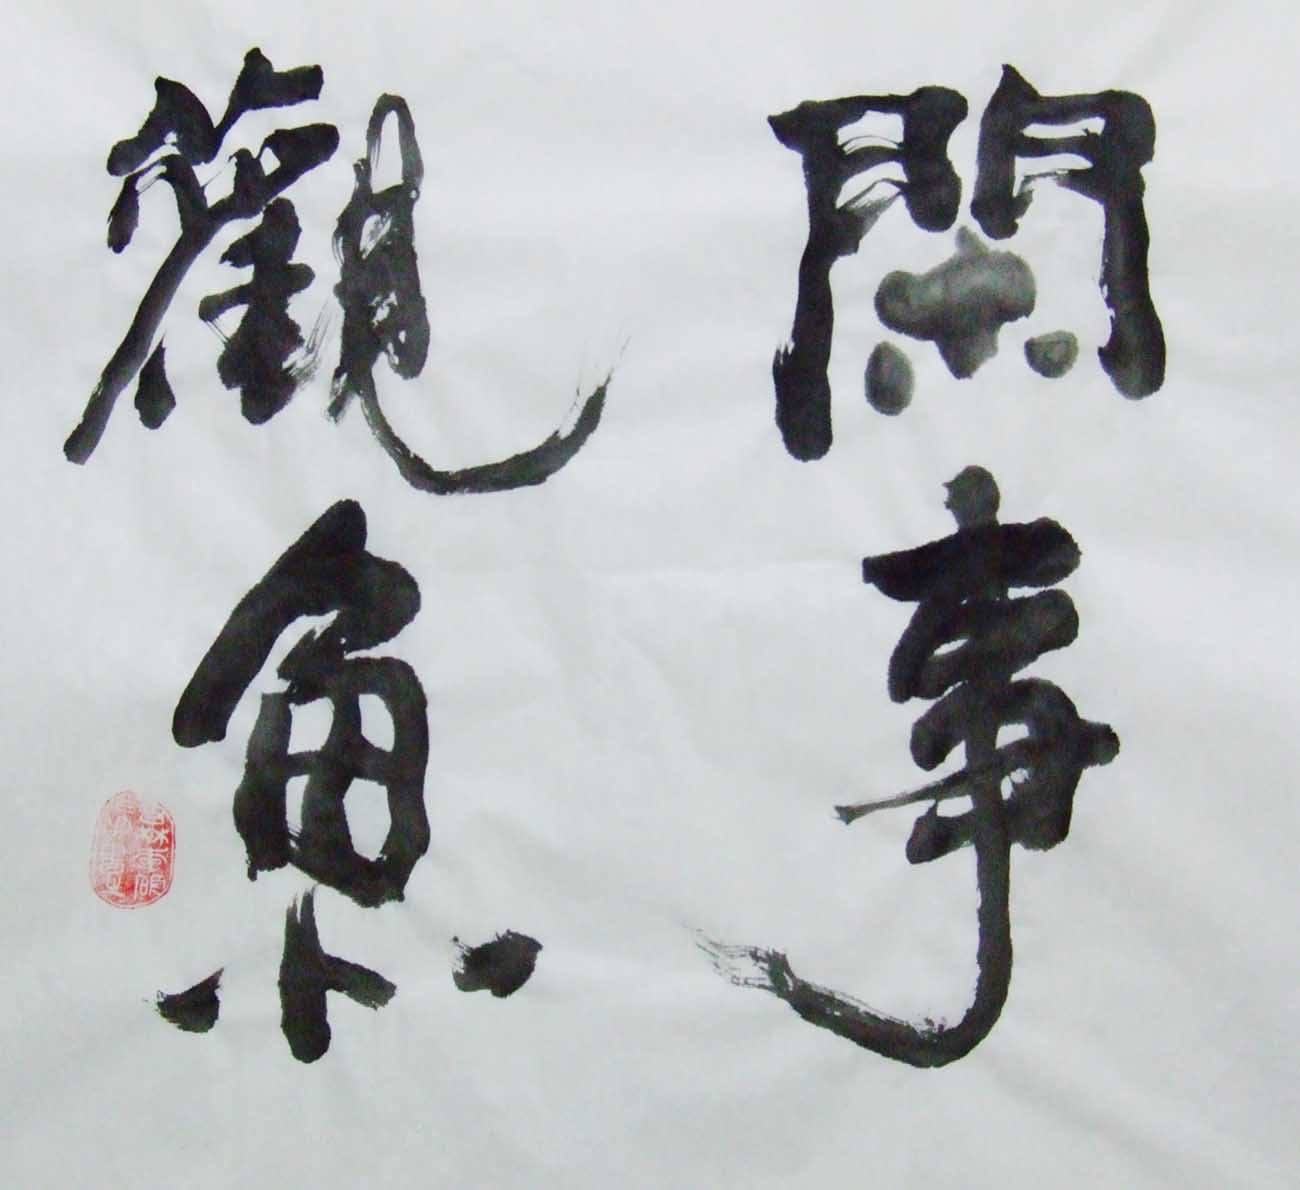 閑事
觀魚